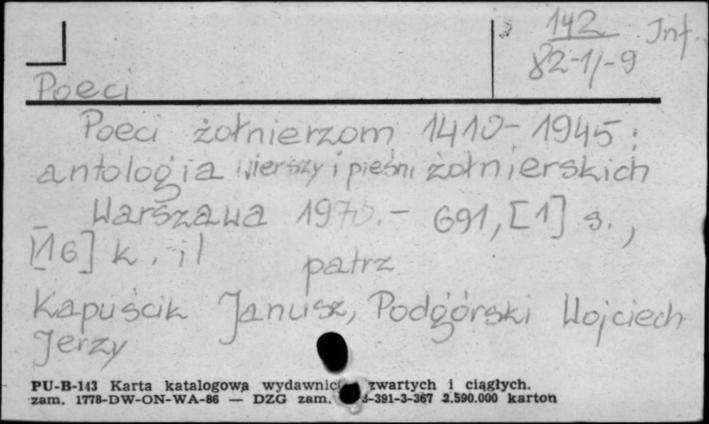 142 Inf.
82-1/-9
Poeci
Poeci żołnierzom 1410-1945 :
antologia wierszy i pieśni żołnierskich
Warszawa 1970.- 691, [1] s.,
[16] k. il
patrz
Kapuścik Janusz, Podgórski Wojciech
Jerzy
PU-B-143 Karta katalogowa wydawnic zwartych i ciągłych.
zam. 1778-DW-ON-WA-86 — DZG zam. 3-391-3-367 2.590.000 karton